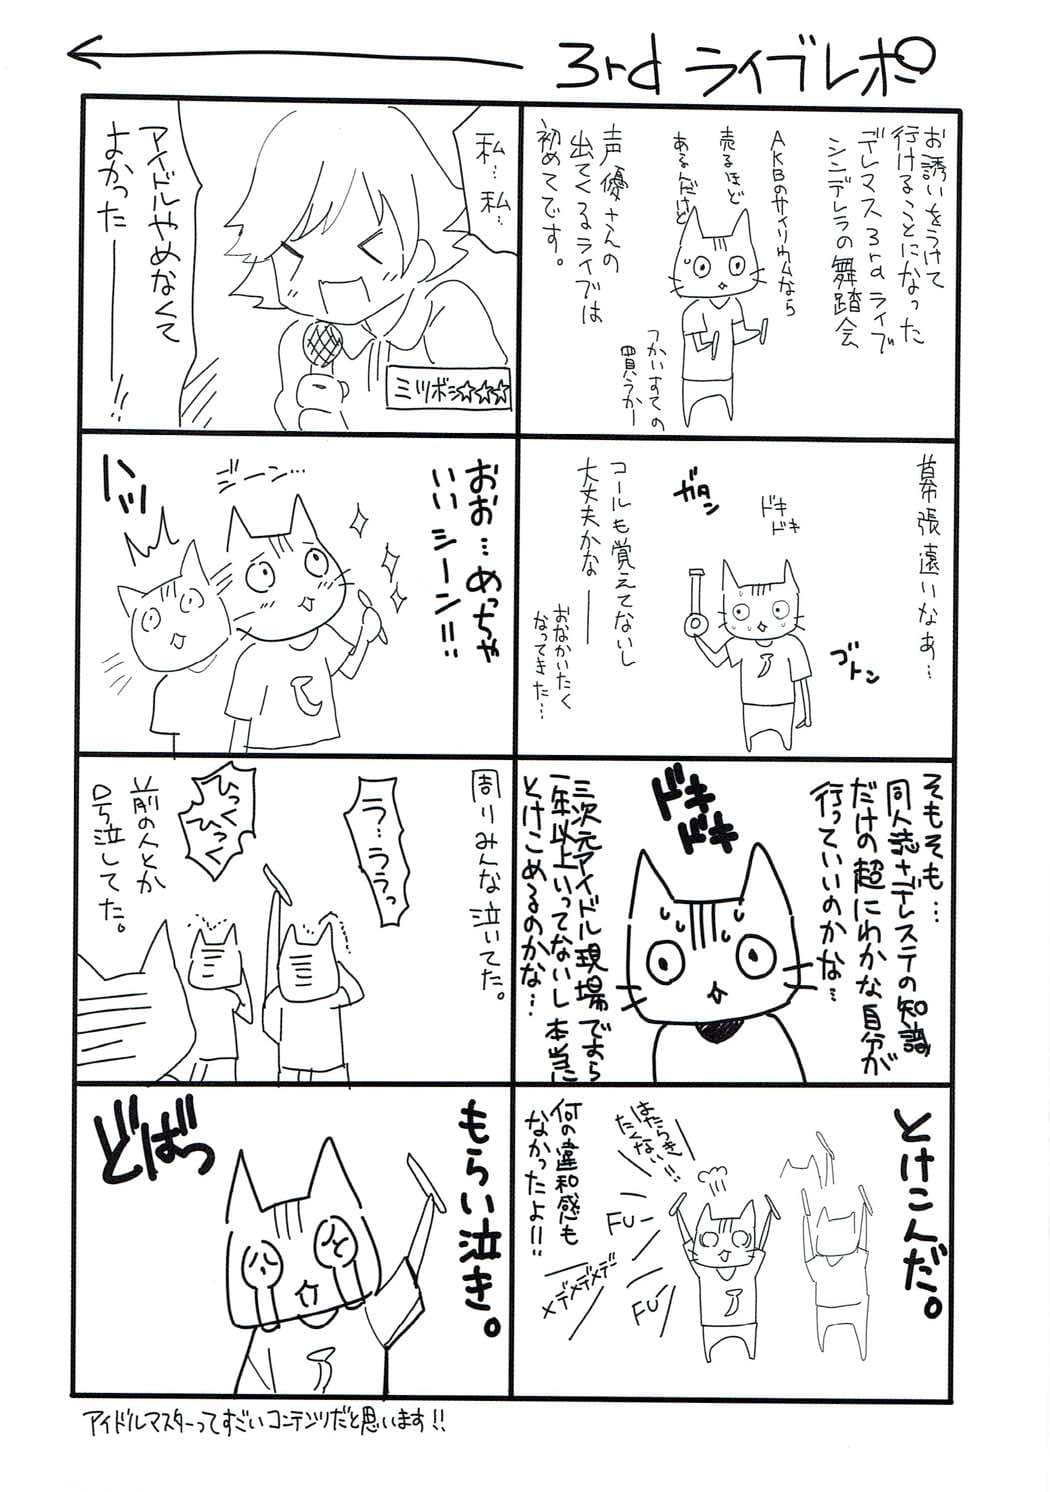 3rd ライブレポ
お誘いをうけて
行けることになった
デレマス3rdライブ
シンデレラの舞踏会
AKBのサイリウムなら
売るほど
あるんだけど
声優さんの
出てくるライブは
初めてです。
つかいすての
買うかー
幕張遠いなぁ…
ドキ
ドキ
ガタン
ゴトン
コールも覚えてないし
大丈夫かな――
おなかいたく
なってきた…
そもそも…
同人誌+デレステの知識
だけの超にわかな自分が
行っていいのかな…
ドキ
ドキ
三次元アイドル現場ですら
一年以上いってないし本当に
とけこめるのかな…
とけこんだ。
はたらき
たくない!!
FU-
FU-
メデメデメデ
何の違和感も
なかったよ!!
私…私…
アイドルやめなくて
よかった――――!!
ミツボシ☆☆★
おお…めっちゃ
いいシーン!!
ジーン…
ハッ
周りみんな泣いてた。
ラ…ララっ
ひっく
ひっく
前の人とか
号泣してた。
もらい泣き。
どばっ
アイドルマスターってすごいコンテンツだと思います!!